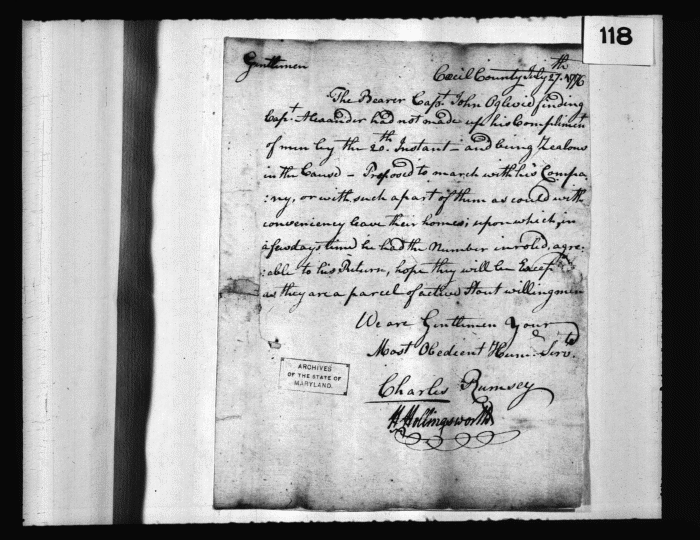 118
Gentlemen
Cecil County July 27.th 1776
The Bearer Cap.t John Oglevie finding
Cap.t Alexander had not made up his Compliment
of men by the 20.th Instant – and being Zealous
in the Cause – Proposed to march with his Compa
:ny, or with such a part of them as could with
conveniency leave their homes; upon which, in
a few days time he had the Number inroled, agre:
:able to his Return, hope they will be Except.d
as they are a parcel of active Stout willing men
We are Gentlemen Your
Most Obedient Hum.e Serv.ts
Charles Rumsey
H Hollingsworth
ARCHIVES
OF THE STATE OF
MARYLAND.